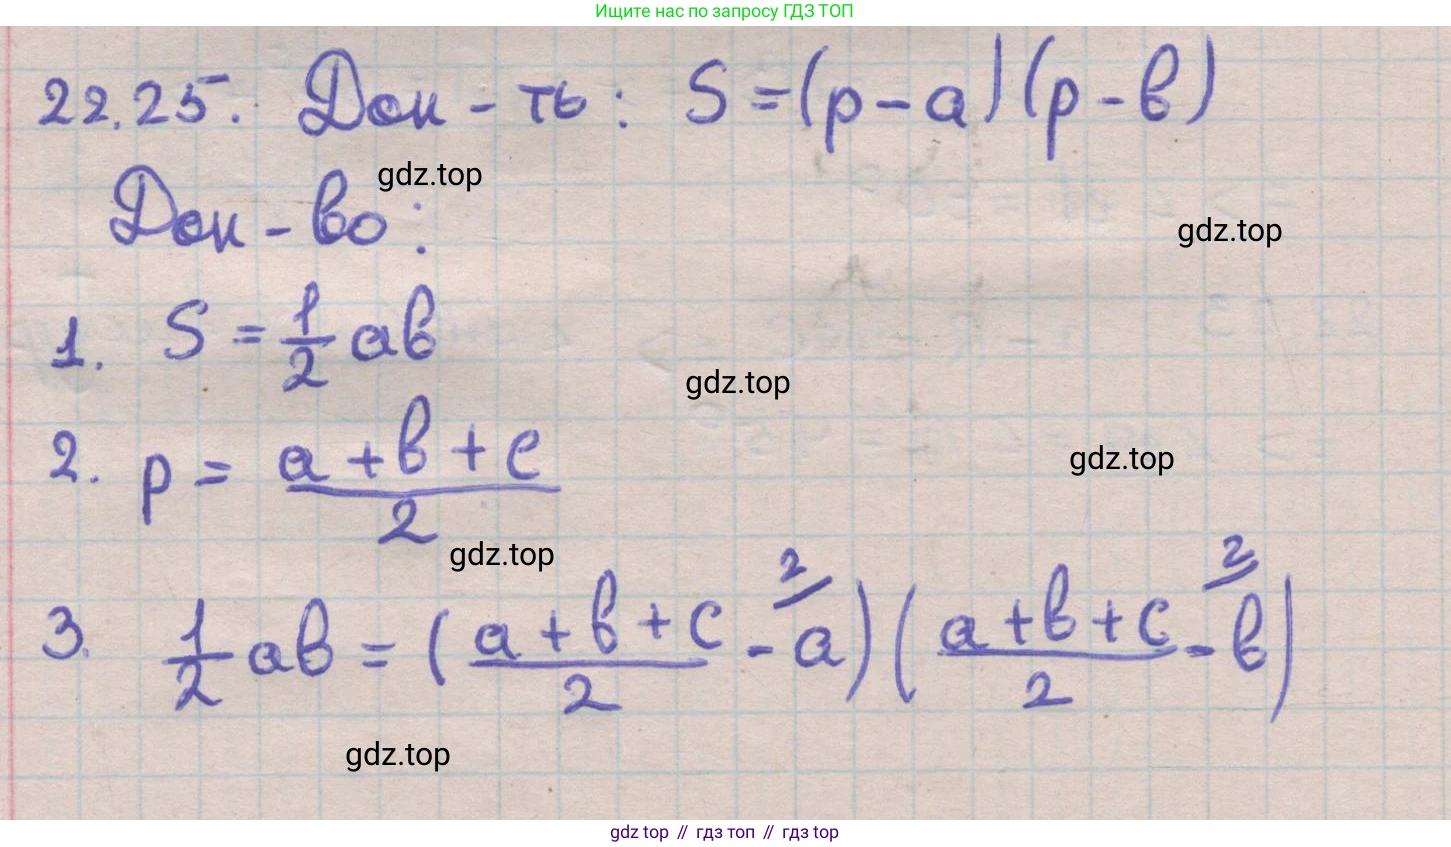 Ищите нас по запросу ГДЗ ТОП
22.25. Док-ть: S = (p - a)(p - в)
gdz.top
Док-во:
gdz.top
1. S = 1/2 aв
gdz.top
2. p = (a + в + c)/2
gdz.top
gdz.top
3. 1/2 aв = ((a + в + c)/2 - a^2/)((a + в + c)/2 - в^2/)
gdz.top
gdz top // гдз топ // гдз top